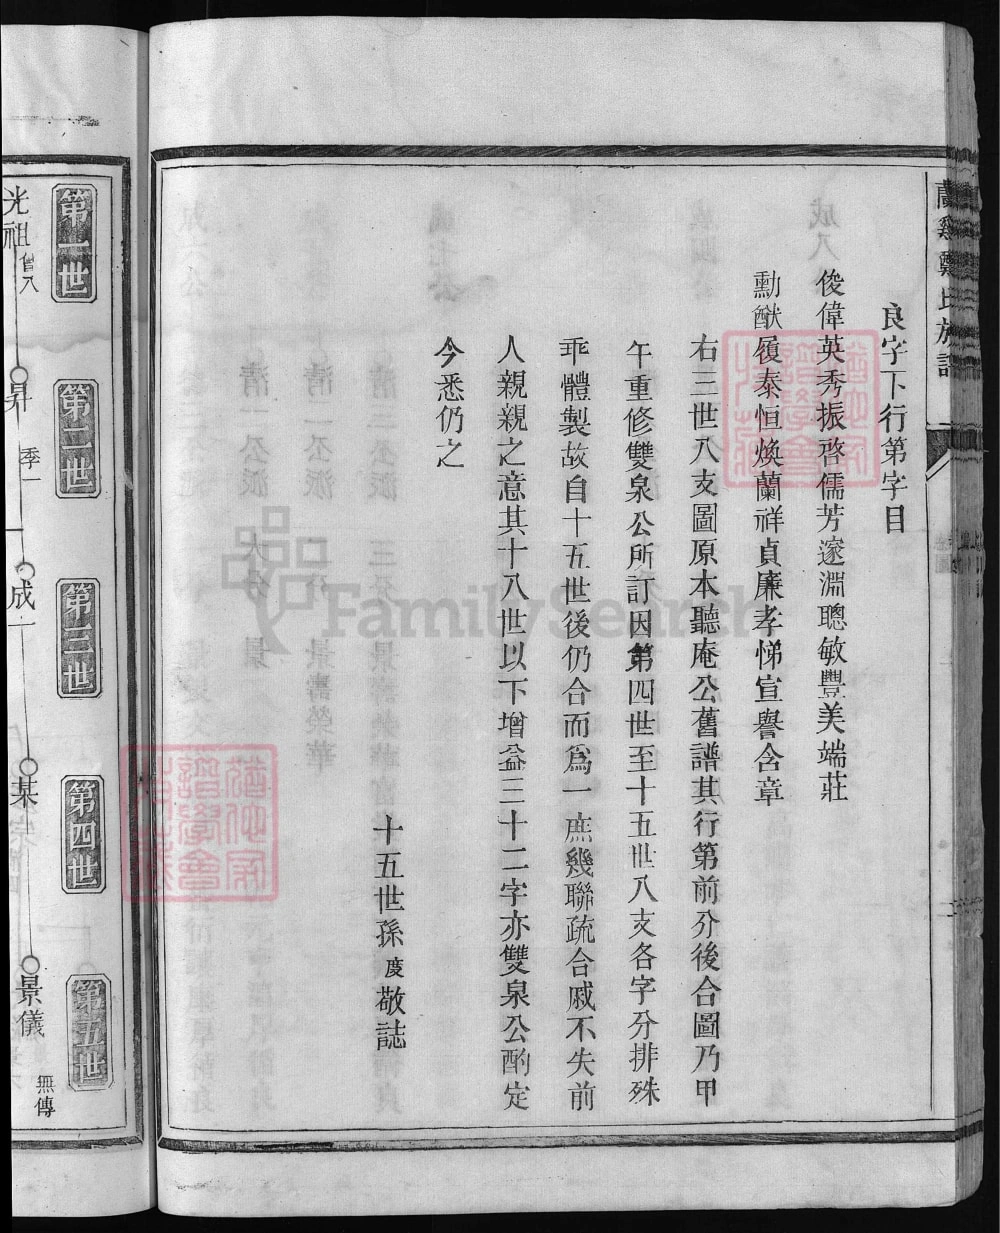 良字下行第字目
俊偉英秀振啓儒芳邃淵聰敏豐美端莊
勳猷履泰恒煥蘭祥貞廉孝悌宣譽含章
右三世八支圖原本聽庵公舊譜其行第前分後合圖乃甲
午重修雙泉公所訂因第四世至十五世八支各字分排殊
乖體製故自十五世後仍合而爲一庶幾聯疏合戚不失前
人親親之意其十八世以下增益三十二字亦雙泉公酌定
今悉仍之
十五世孫度敬誌
第一世
第二世
第三世
第四世
第五世
光祖
昇 季一
成一
某
景儀 無傳
FamilySearch